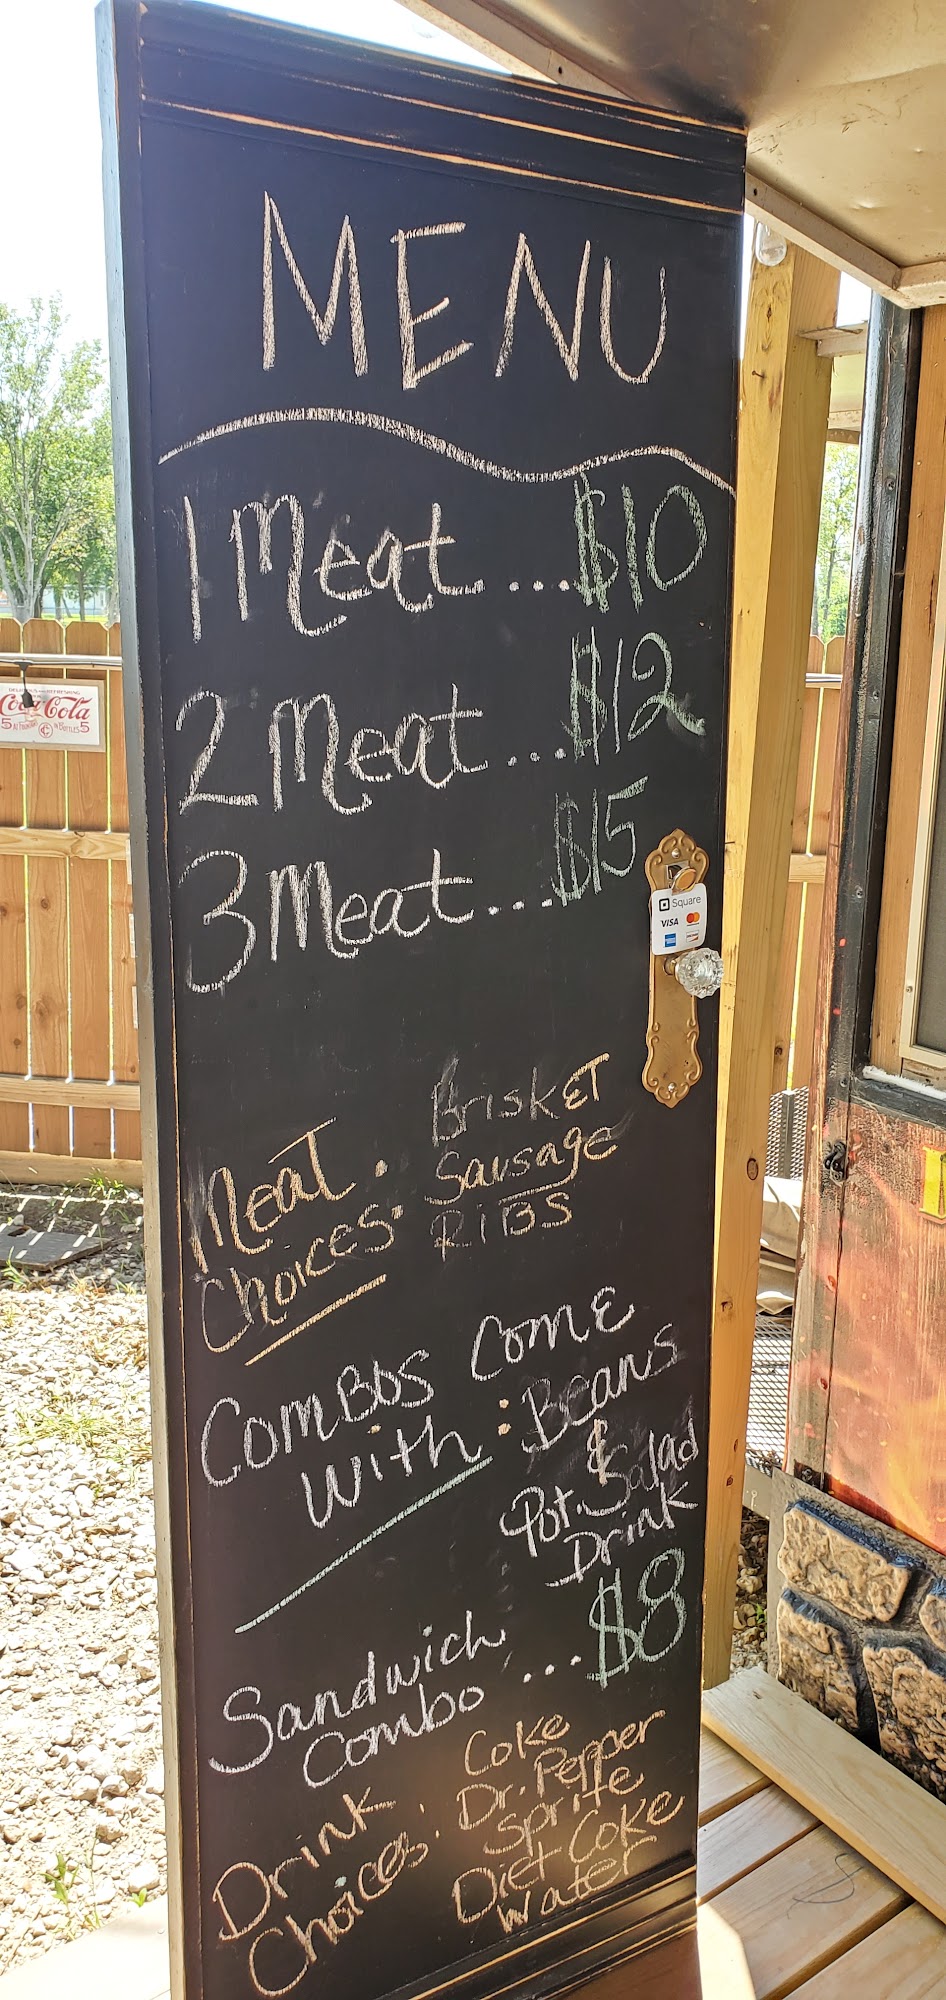 MENU
1 Meat....$10
2 Meat...$12
3 Meat...$15
Square
VISA
Meat Choices: Brisket
Sausage
RIBS
Combos Come
With: Beans
&
Pot. Salad
Drink
Sandwich
Combo ...$8
Drink
Choices: Coke
Dr. Pepper
Sprite
Diet Coke
Water
DELICIOUS AND REFRESHING
Coca-Cola
5 At Fountains in Bottles 5